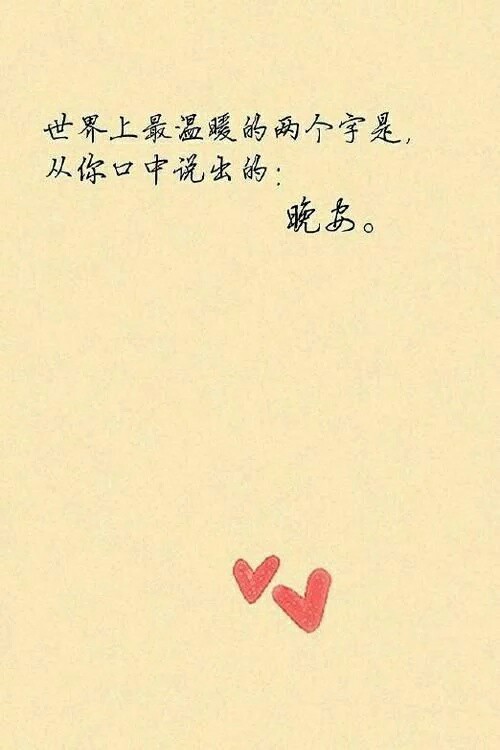 世界上最温暖的两个字是，
从你口中说出的：
晚安。